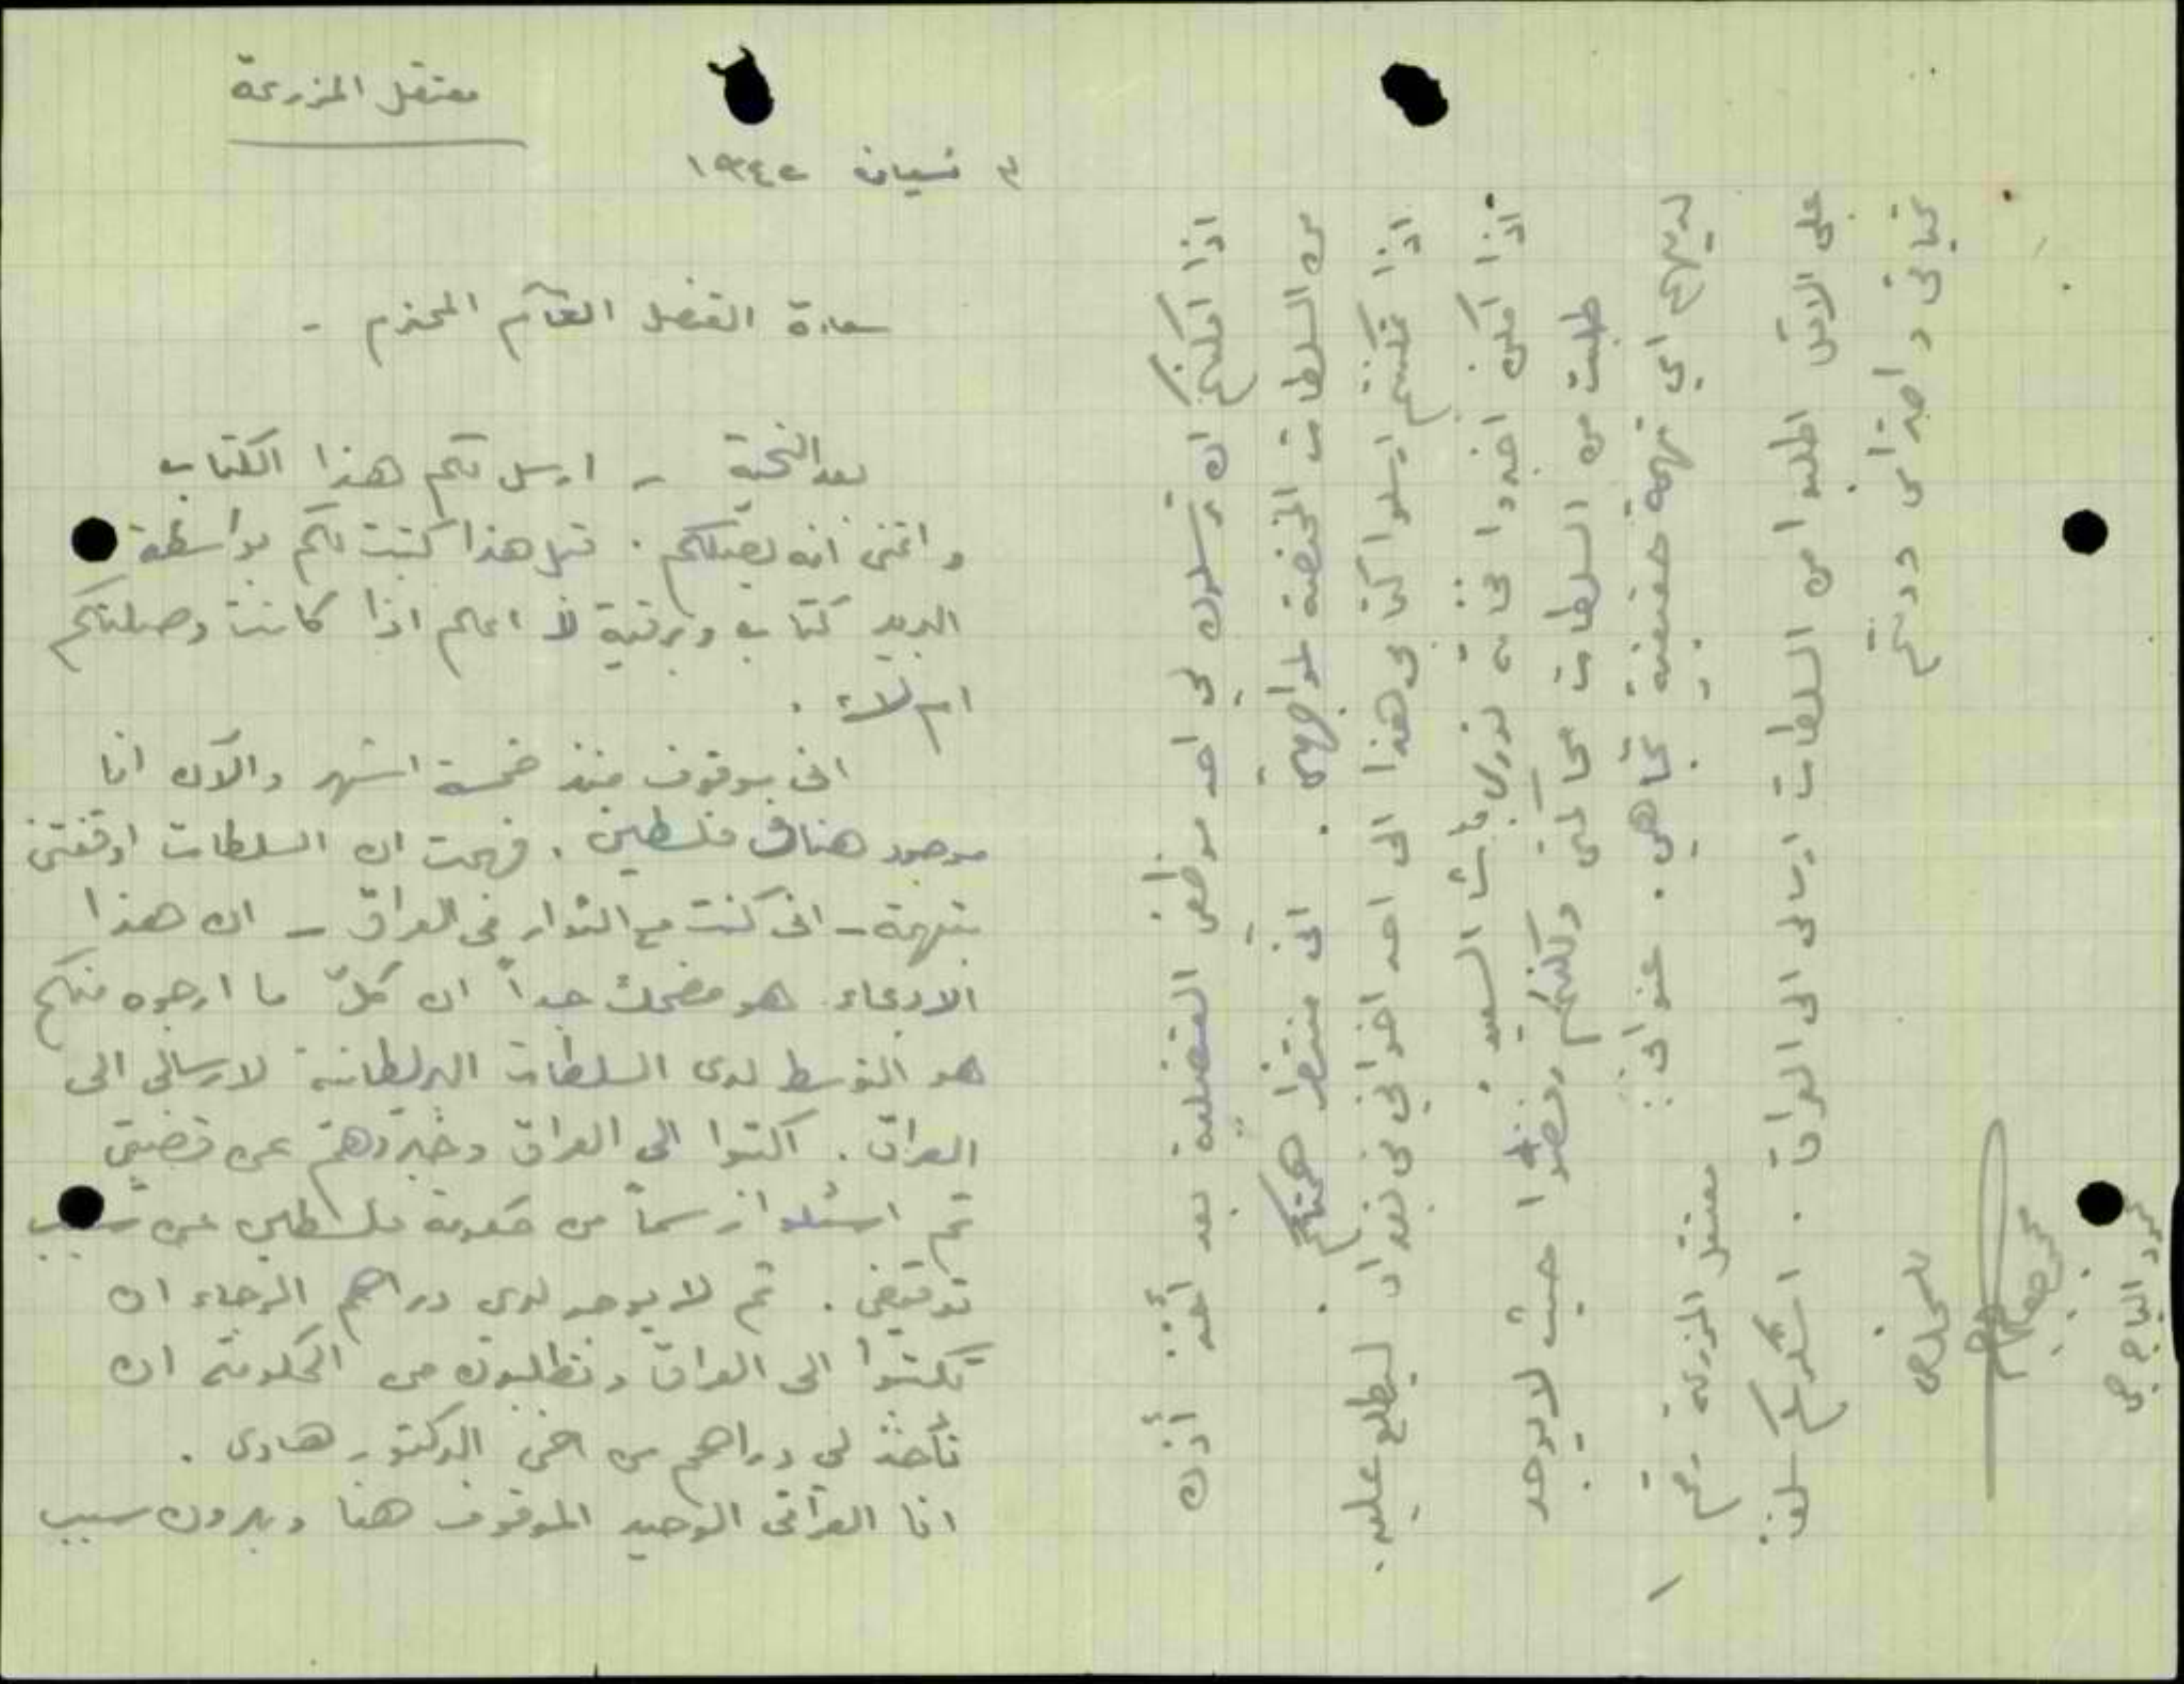 معتقل المزرعة
٣ نسيان ١٩٤٢
سعادة القنصل القائم المحترم -
بعد التحية - ارسل لكم هذا الكتاب
واتمنى انه يصلكم . قبل هذا كتبت لكم بواسطة
البريد كتاب وبرقية لا اعلم اذا كانت وصلتكم
ام لا .
انى موقوف منذ خمسة اشهر والآن انا
موجود هنا فى فلسطين . فهمت ان السلطات اوقفتنى
بتهمة - انى كنت مع الثوار فى العراق - ان هذا
الادعاء هو مضحك جداً ان كلّ ما ارجوه منكم
هو التوسط لدى السلطات البريطانية لارسالى الى
العراق . اكتبوا الى العراق وخبروهم عن قضيتى
ثم اسئلوا رسماً من حكومة فلسطين عن سبب
توقيفى . ثم لا يوجد لدى دراهم الرجاء ان
تكتبوا الى العراق وتطلبون من الحكومة ان
تأخذ لى دراهم من اخى الدكتور هادى .
انا العراقى الوحيد الموقوف هنا وبدون سبب
اذا امكنكم ان ترسلون لى احد موظفى القنصلية بعد أخذ أذن
من السلطات المختصة لمواجهتى . انى منتظر همتكم .
اذا تمكنتم ارسلوا كتابى هذا الى احد اخوانى فى بغداد ليطلع عليه
اذا امكن اخبروا فخامة نورى باشا السعيد .
طلبت من السلطات محاكمتى ولكنهم رفضوا حيث لا يوجد
لديهم اي تهمة حقيقية تجاهي . عنوانى : معتقل المزرعة رقم ١
على الاقل اطلبوا من السلطات ارسالى الى العراق . اشكركم سلفا
تحياتى واحتراى ودمتم
المخلص